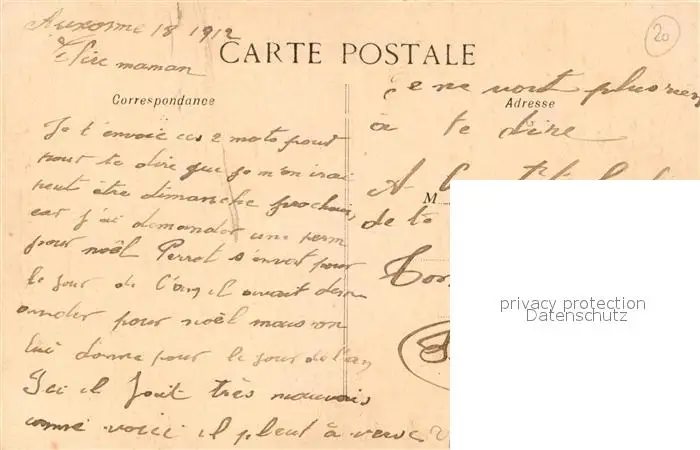 Auxonne 18 1912
CARTE POSTALE
20
Chère maman
Correspondance
Je ne voit plus rien
Adresse
à te dire
Je t'envoie ces 2 mots pour
pour te dire que je m'en irai
peut être dimanche prochain,
car j'ai demander une perm
pour noël Perrot s'en vat pour
le jour de l'an il avait dem
ander pour noël mais on
lui donne pour le jour de l'an
Ici il fait très mauvais
comme voici il pleut à verse
A
M
de te
privacy protection
Datenschutz